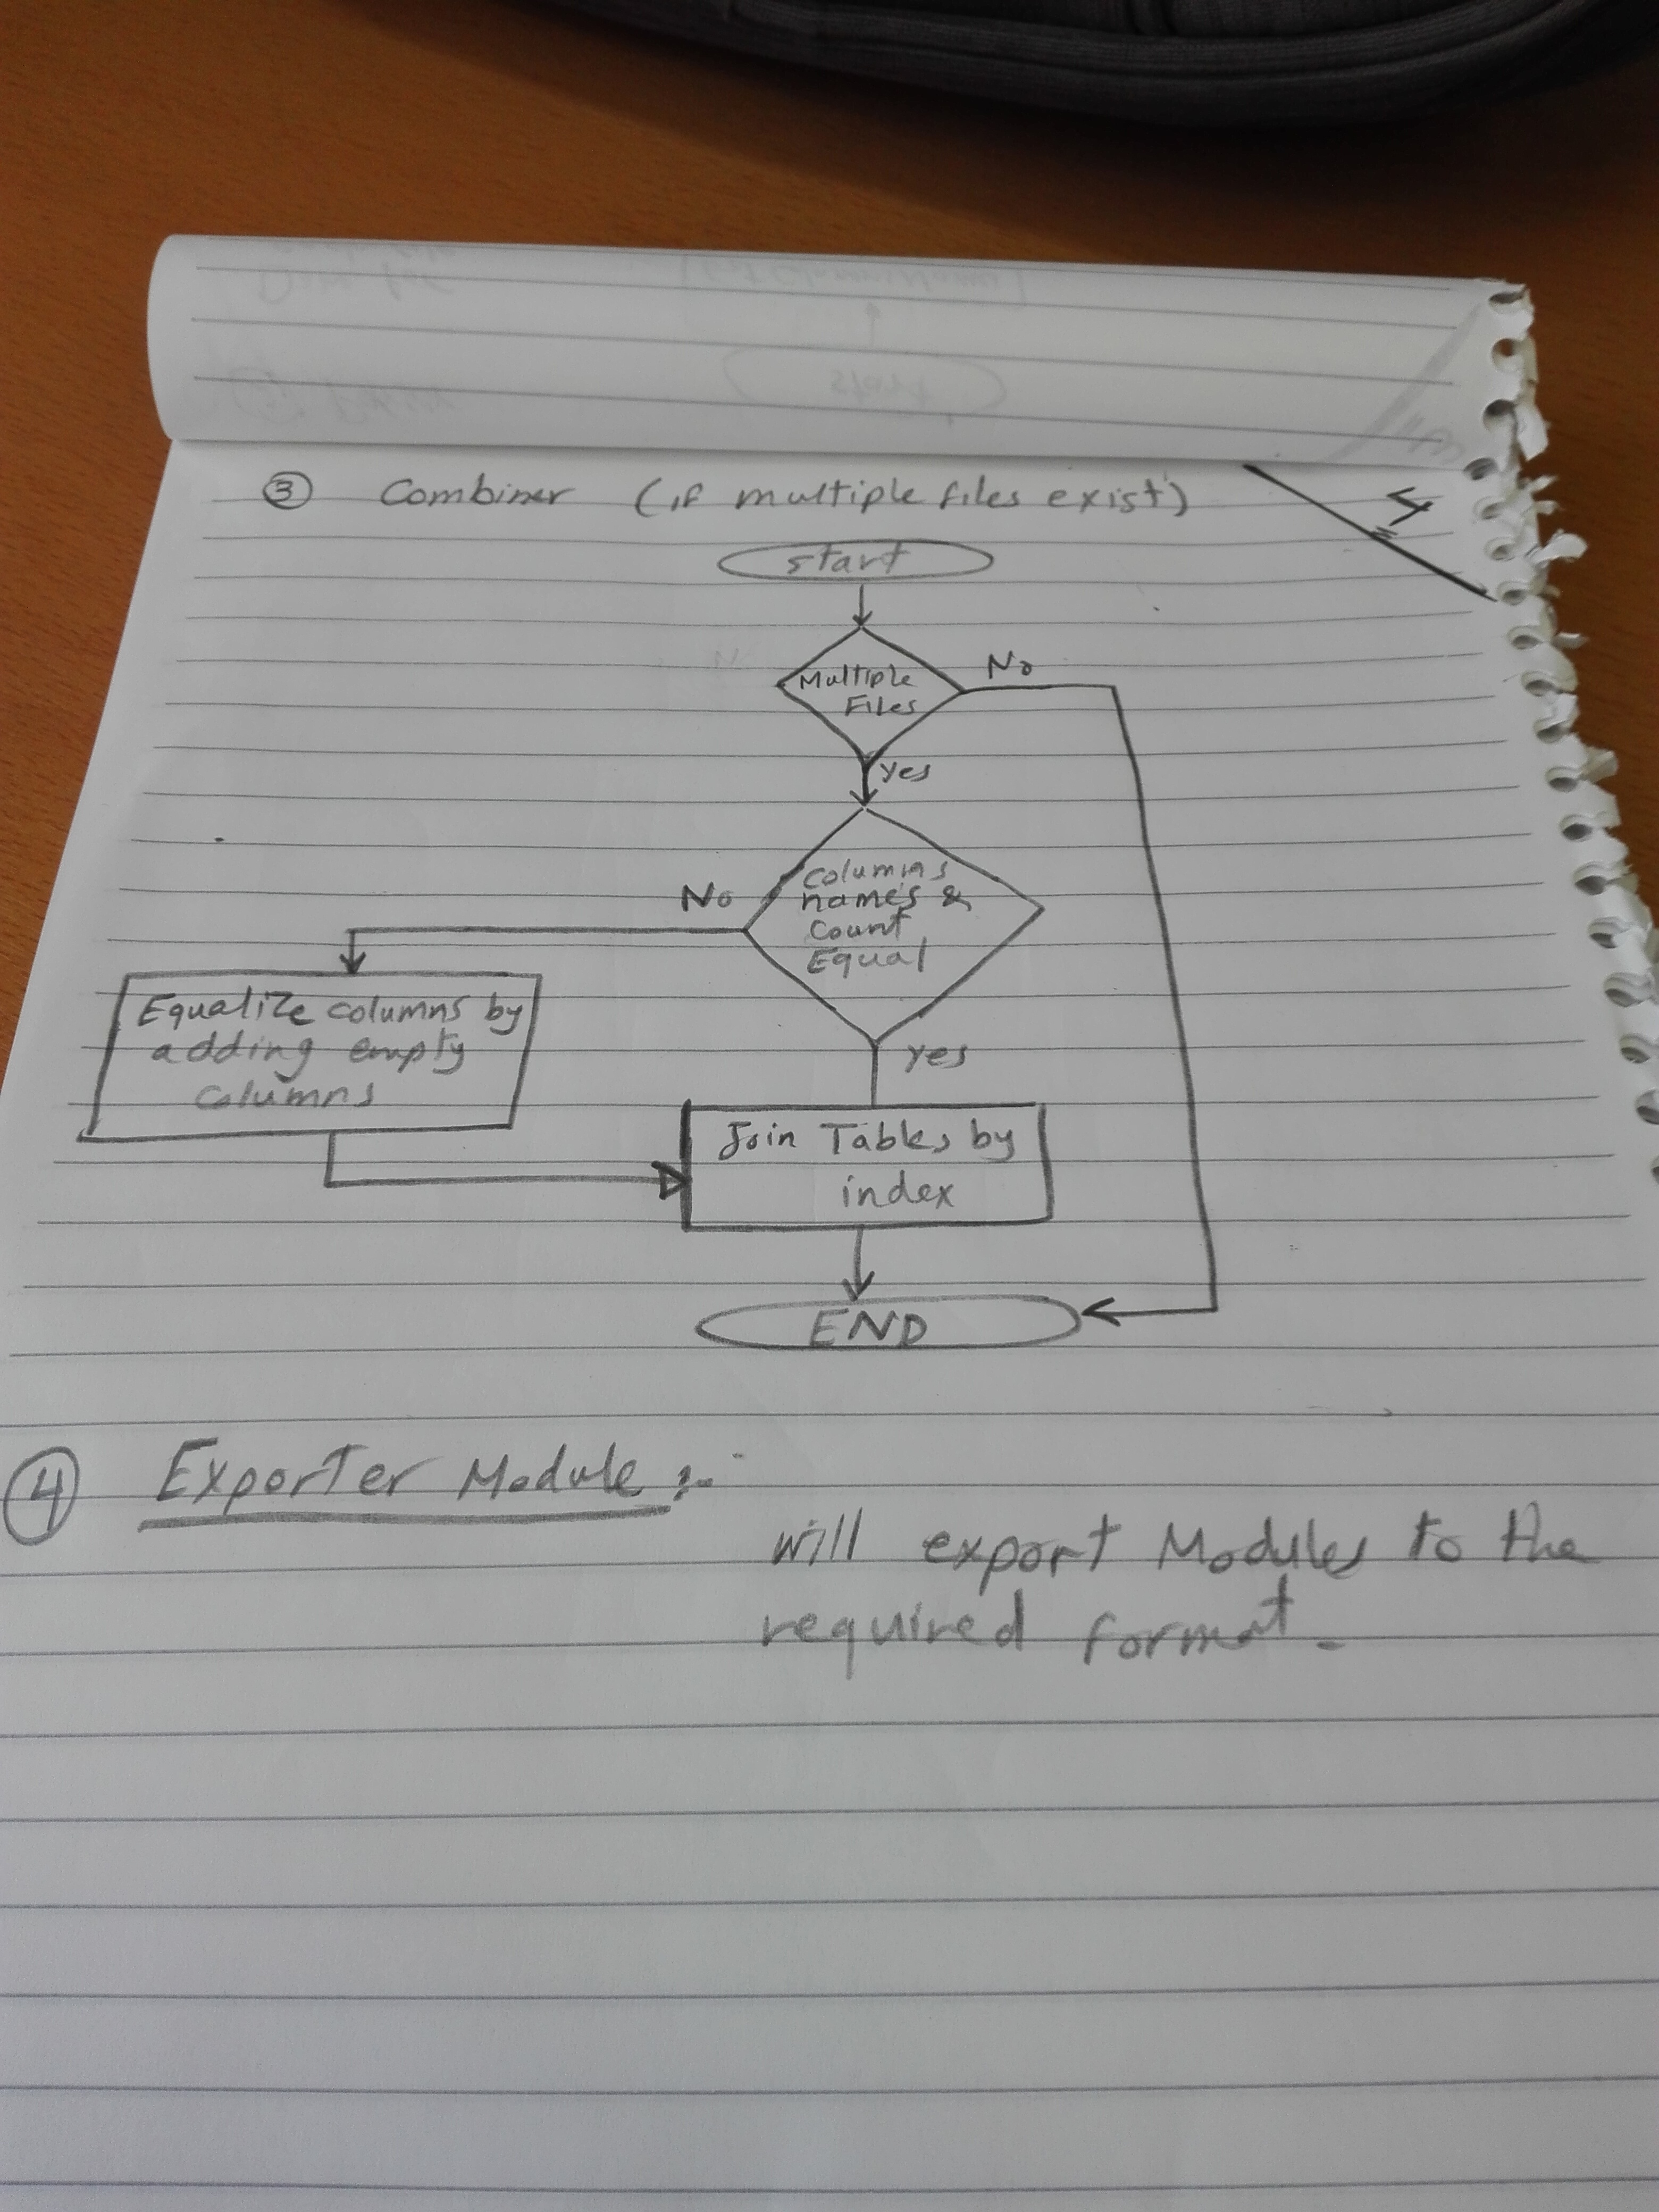 ③ Combiner (if multiple files exist)
4
start
Multiple
Files
No
yes
columns
names &
count
Equal
No
Equalize columns by
adding empty
columns
yes
Join Tables by
index
END
④ Exporter Module :-
will export Modules to the
required format.